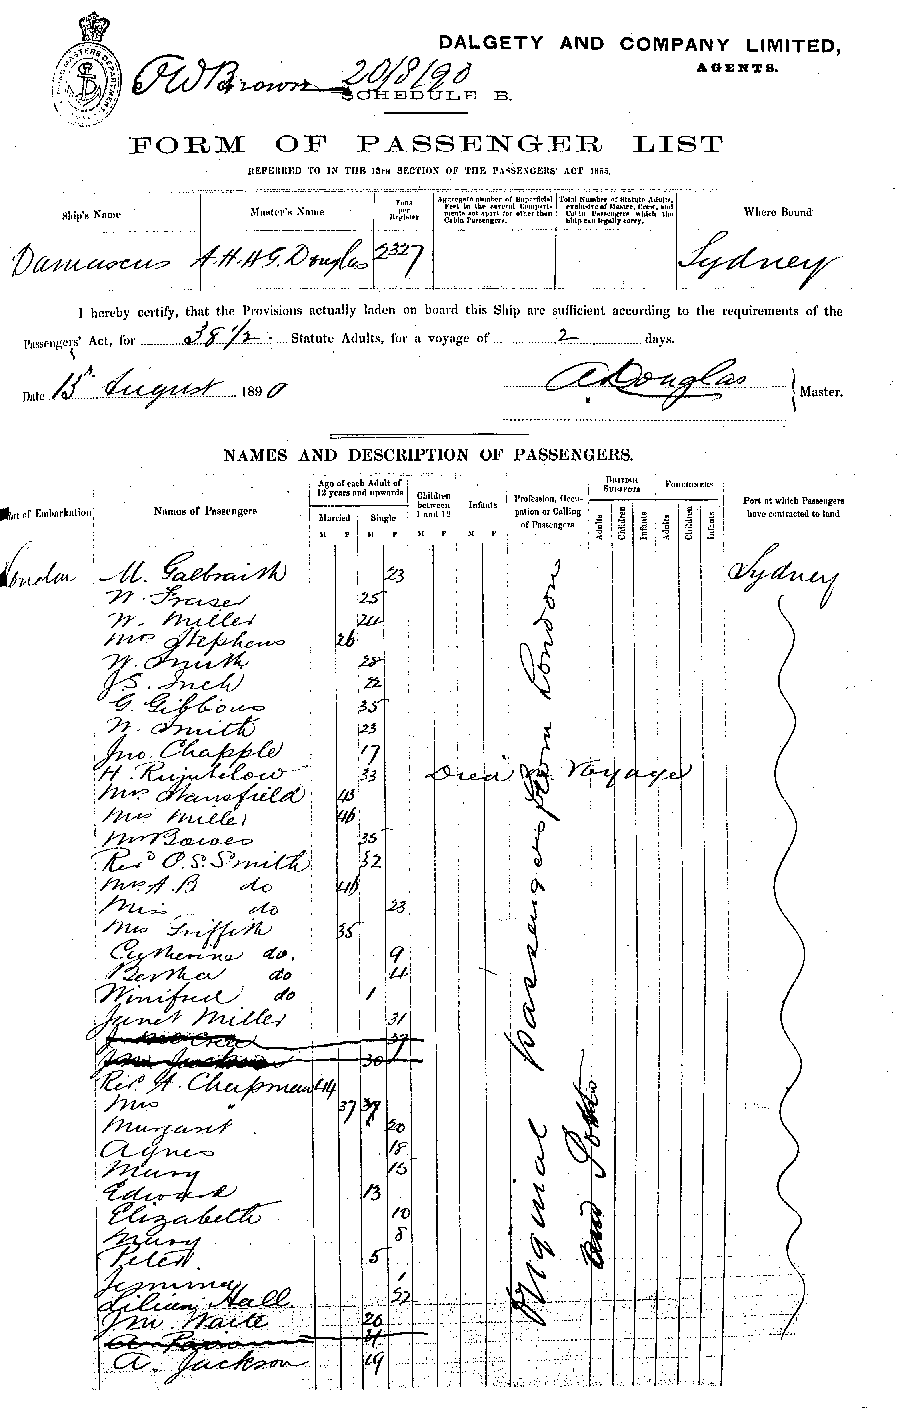 DALGETY AND COMPANY LIMITED,
AGENTS.
Brown 20/8/90
SCHEDULE B.
FORM OF PASSENGER LIST
REFERRED TO IN THE 13TH SECTION OF THE PASSENGERS' ACT 1855.
Ship's Name Master's Name Tons per Register Aggregate number of Superficial Feet in the several Compartments set apart for other than Cabin Passengers. Total Number of Statute Adults, exclusive of Master, Crew, and Cabin Passengers which the Ship can legally carry. Where Bound
Damascus A.H.H.G. Douglas 2327 Sydney
I hereby certify, that the Provisions actually laden on board this Ship are sufficient according to the requirements of the
Passengers' Act, for 38 1/2 Statute Adults, for a voyage of 2 days.
Date 15th August 1890 Douglas Master.
NAMES AND DESCRIPTION OF PASSENGERS.
of Embarkation Names of Passengers Age of each Adult of 12 years and upwards Children between 1 and 12 Infants Profession, Occupation or Calling of Passengers BRITISH SUBJECTS FOREIGNERS Port at which Passengers have contracted to land
Married Single Adults Children Infants Adults Children Infants
M F M F M F M F
London M. Galbraith 23 Sydney
W. Fraser 25
W. Miller 24
Mrs Stephens 26
W. Smith 28
J.S. Inch 22
G. Gibbons 35
W. Smith 23
Jno. Chapple 17
H. 33 Died Voyage
Mrs Mansfield 43
Mrs Miller 46
Bowes 35
Revd O.S. Smith 52
Mrs A.B do 48
Miss do 23
Mrs Griffith 35
Catherine do. 9
Bertha do 4
Winifred do 1
Janet Miller 31
39
Jackson 30
Rev. H. Chapman 44
Mrs " 37
Margaret 20
Agnes 18
Mary 15
Edward 13
Elizabeth 10
Mary 8
Peter 5
Jemima 1
Lilian Hall 22
Jno. Waite 20
A.
A. Jackson 19
Original passengers from London
and Ports